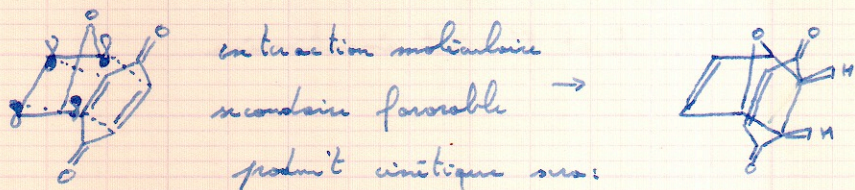 O O
interaction moléculaire
secondaire favorable →
produit cinétique sera:
O
O O
H
H
O